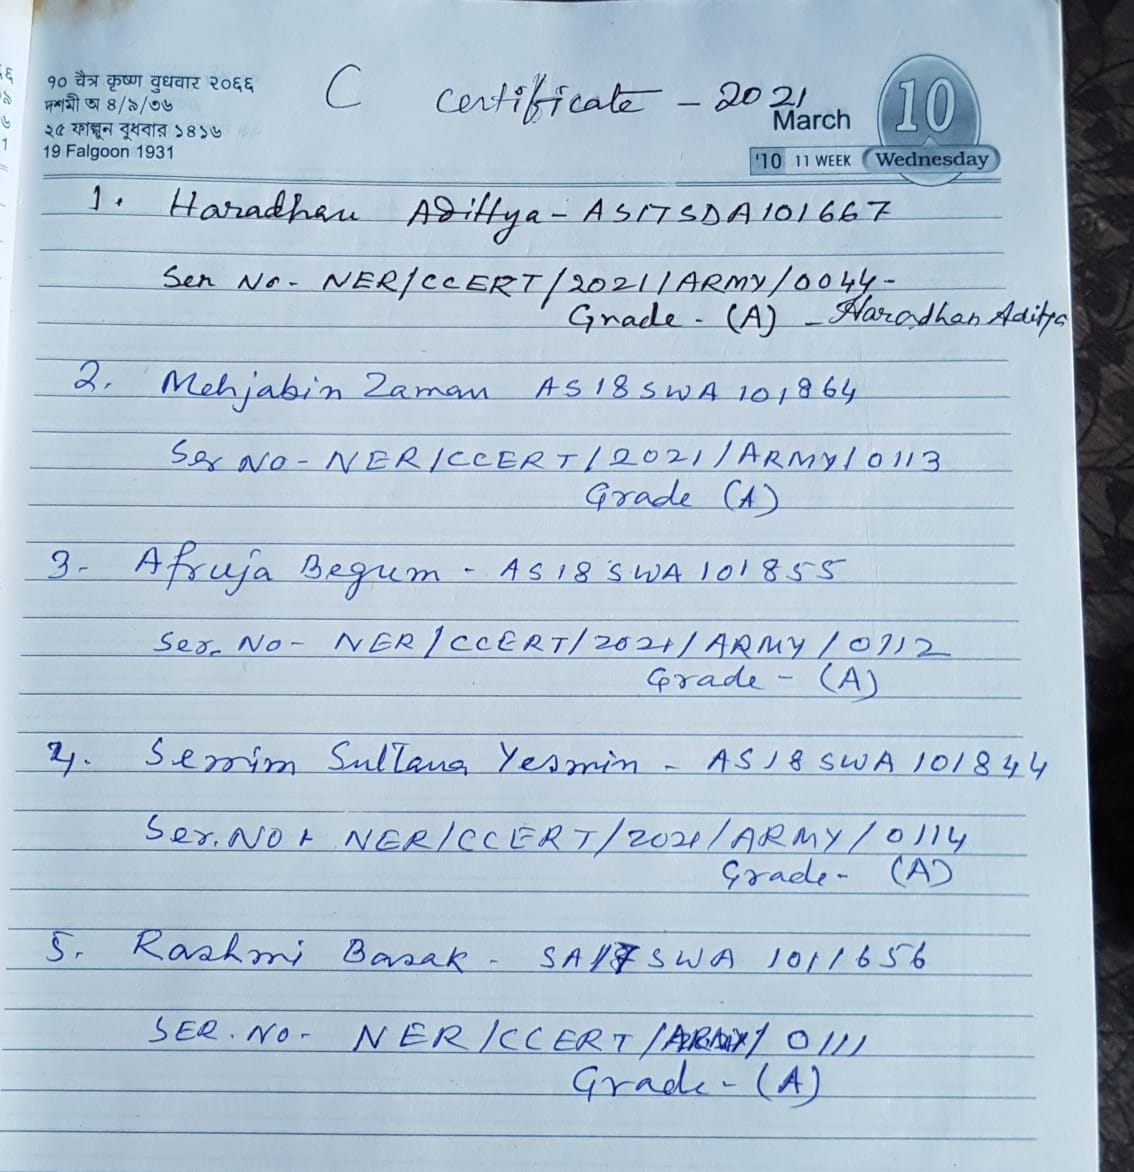 १० चैत्र कृष्ण बुधवार २०६६
দশমী অ ৪/৯/৩৬
২৫ ফাল্গুন বুধবার ১৪১৬
19 Falgoon 1931
C certificate - 2021
March 10
'10 11 WEEK Wednesday
1. Haradhan Adittya - AS17SDA101667
Ser No - NER/CCERT/2021/ARMY/0044-
Grade - (A) - Haradhan Aditya
2. Mehjabin Zaman AS18SWA101864
Ser NO - NER/CCERT/2021/ARMY/0113
Grade (A)
3- Afruja Begum - AS18SWA101855
Ser. NO - NER/CCERT/2021/ARMY/0112
Grade - (A)
4. Serrim Sultana Yesmin - AS18SWA101844
Ser. NO - NER/CCERT/2021/ARMY/0114
Grade - (A)
5. Rashmi Basak - SA17SWA1011656
SER. NO - NER/CCERT/ARMY/0111
Grade - (A)